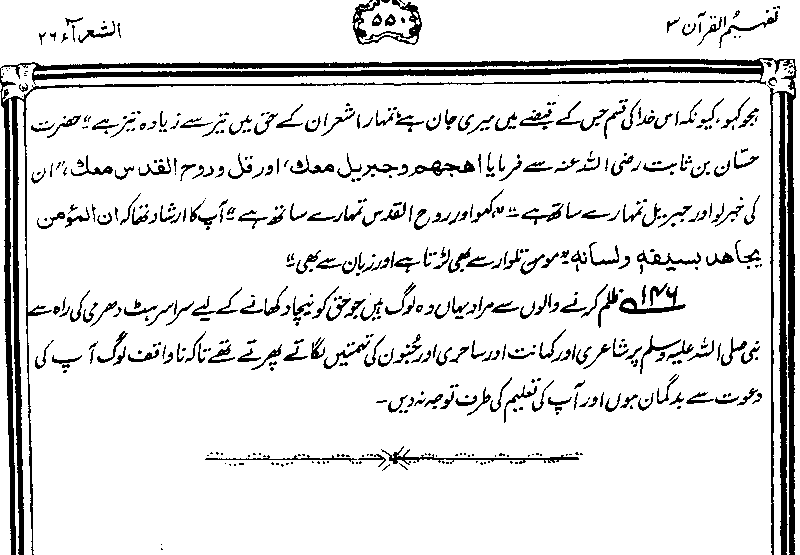 تفہیم القرآن ۳
۵۵۰
الشعرآء ۲۶
ہجو کہو، کیونکہ اس خدا کی قسم جس کے قبضے میں میری جان ہے، تمہارا شعر ان کے حق میں تیر سے زیادہ تیز ہے"۔ حضرت
حسّان بن ثابت رضی اللہ عنہ سے فرمایا اھجھم وجبریل معک، اور قل و روح القدس معک، "ان
کی خبر لو اور جبریل تمہارے ساتھ ہے"۔ "کہو اور روح القدس تمہارے ساتھ ہے"۔ آپ کا ارشاد تھا کہ ان المؤمن
یجاھد بسیفہٖ ولسانہٖ "مومن تلوار سے بھی لڑتا ہے اور زبان سے بھی"۔
۱۴۶ ظلم کرنے والوں سے مراد یہاں وہ لوگ ہیں جو حق کو نیچا دکھانے کے لیے سراسر ہٹ دھرمی کی راہ سے
نبی صلی اللہ علیہ وسلم پر شاعری اور کہانت اور ساحری اور جنون کی تہمتیں لگاتے پھرتے تھے تاکہ ناواقف لوگ آپ کی
دعوت سے بدگمان ہوں اور آپ کی تعلیم کی طرف توجہ نہ دیں۔